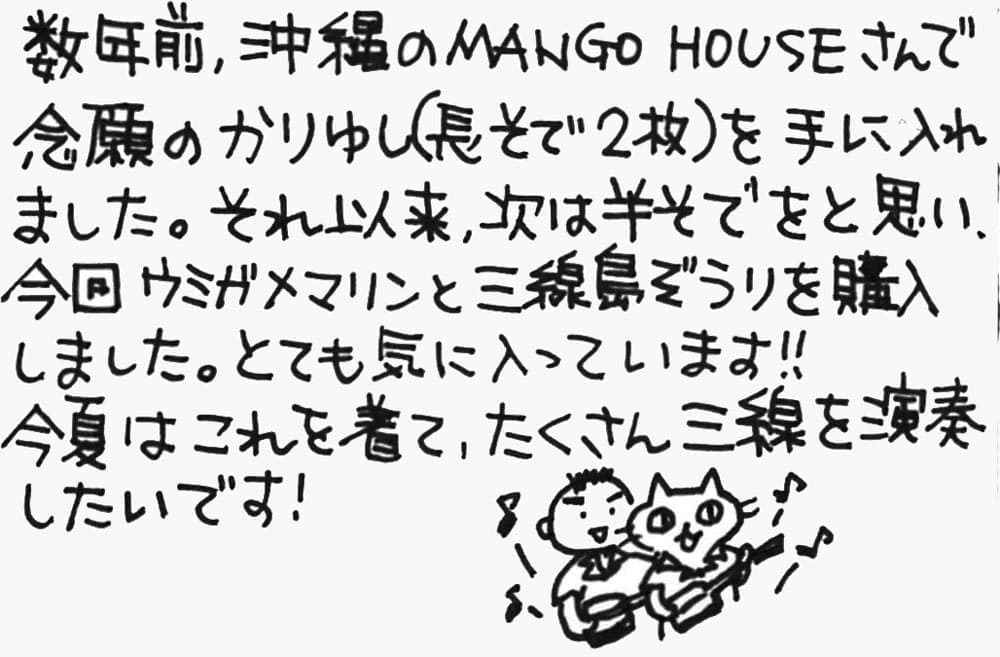 数年前,沖縄のMANGO HOUSEさんで
念願のかりゆし(長そで2枚)を手に入れ
ました。それ以来,次は半そでをと思い、
今回ウミガメマリンと三線島ぞうりを購入
しました。とても気に入っています!!
今夏はこれを着て,たくさん三線を演奏
したいです!